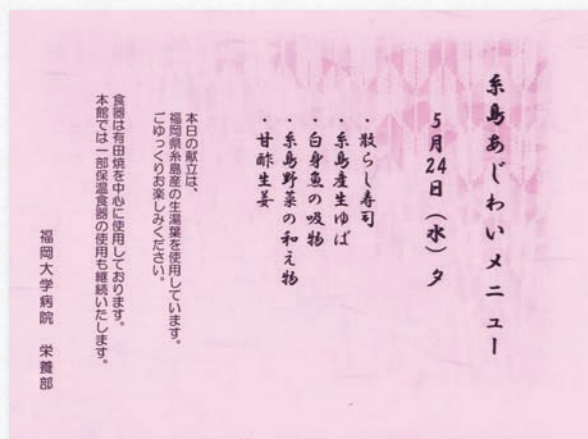 糸島あじわいメニュー
5月24日（水）夕
・散らし寿司
・糸島産生ゆば
・白身魚の吸物
・糸島野菜の和え物
・甘酢生姜
本日の献立は、
福岡県糸島産の生湯葉を使用しています。
ごゆっくりお楽しみください。
食器は有田焼を中心に使用しております。
本館では一部保温食器の使用も継続いたします。
福岡大学病院　栄養部